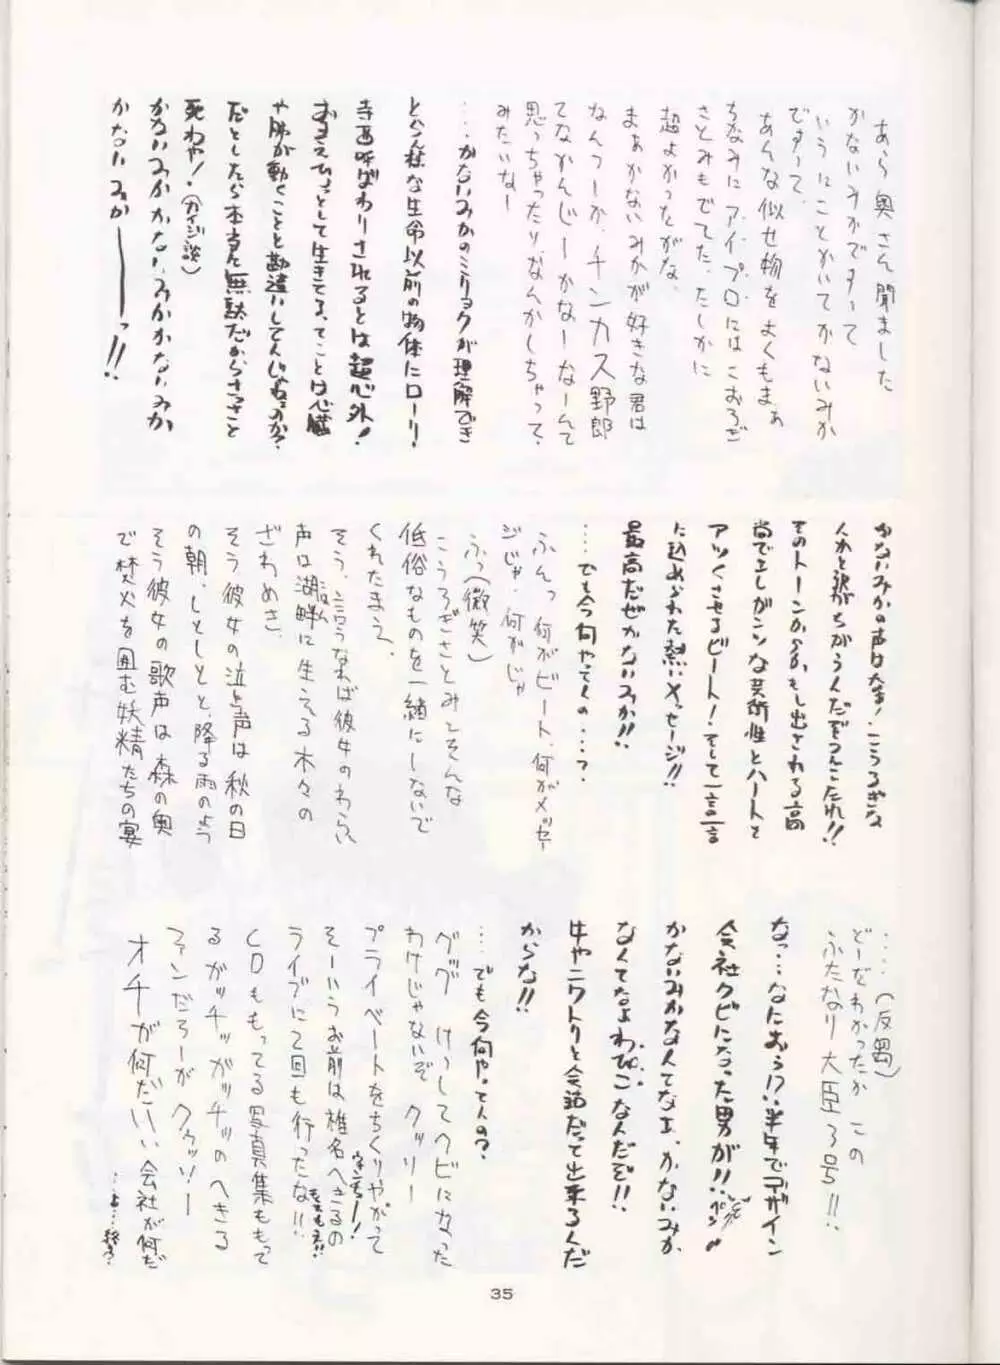 あら奥さん聞ました
かないみかですって
いうにことかいてかないみか
ですって、
あんな似せ物をよくもまぁ
ちなみにアイプロにはこおろぎ
さとみもでてた、たしかに
超よかったがな、
まぁかないみかが好きな君は
なんつーか、チンカス野郎
てなかんじーかなーなーんて
思っちゃったりなんかしちゃって、
みたいなー
‥‥かないみかのミリョクが理解でき
とらん様な生命以前の物体にローリー
寺西呼ばわりされるとは超心外!
おまえひょっとして生きてる、てことは心臓
や肺が動くことと勘違いしてんじゃねーのか?
だとしたら本当に無駄だからさっさと
死ねや!(カイジ談)
かないみかかないみかかないみか
かないみかーーっ!!
かないみかの声は太金!こうろぎな
んかと訳がちがうんだぞうんこたれ!!
そのトーンからかもし出される高
尚でエレガンツな芸術性とハートを
アツくさせるビート!そして一言一言
に込められた熱いメッセージ!!
最高だぜかないみか!!
‥‥でも今何やってんの‥‥?
ふんっ 何がビート、何がメッセー
ジじゃ、何がじゃ
ふっ(微笑)
こうろぎさとみをそんな
低俗なものを一緒にしないで
くれたまえ、
そう、言うなれば彼女のわらい
声は湖畔に生える木々の
ざわめき、
そう彼女の泣き声は秋の日
の朝、しとしとと、降る雨のよう
そう彼女の歌声は森の奥
で焚火を囲む妖精たちの宴
‥‥(反芻)
どーだわかったか この
ふたなり大臣3号!!
なっ‥‥なにおぅ!?半年でデザイン
会社クビになった男が!!
かないみかなくてなェ、かないみか
なくてなよわぴこなんだぞ!!
牛やニワトリと会話だって出来るんだ
からな!!
‥‥でも今何やってんの?
グッグ けっしてクビになった
わけじゃないぞ クッソー
プライベートをちくりやがって
ウキンちー!
そーいうお前は椎名へきるの
もえもえ!!
ライブに2回も行ったな!!
CDももってる写真集ももって
るガッチッガッチッのへきる
ファンだろーがクゥッソー
オチが何だいい会社が何だ
‥よ‥終り?
35